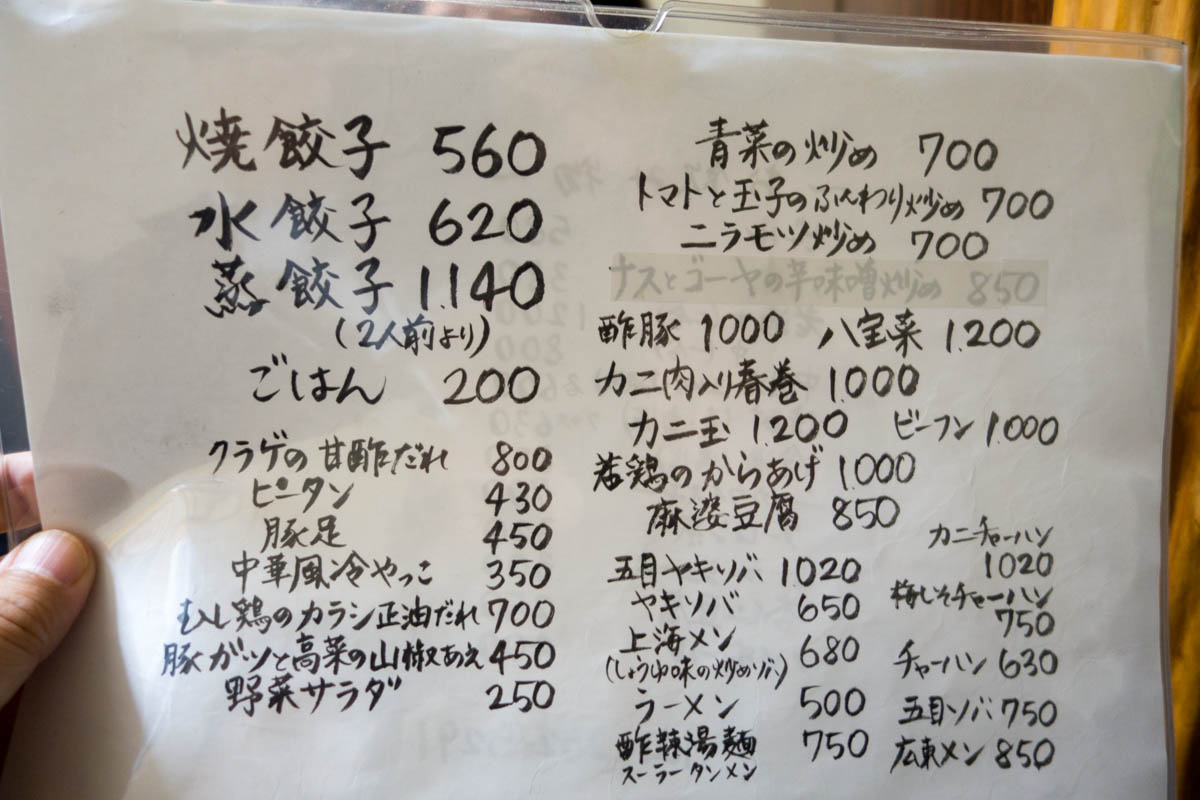 焼餃子 560
水餃子 620
蒸餃子 1.140
(2人前より)
ごはん 200
クラゲの甘酢だれ 800
ピータン 430
豚足 450
中華風冷やっこ 350
むし鶏のカラシ正油だれ 700
豚ガツと高菜の山椒あえ 450
野菜サラダ 250
青菜の炒め 700
トマトと玉子のふんわり炒め 700
ニラモツ炒め 700
ナスとゴーヤの辛味噌炒め 850
酢豚 1000 八宝菜 1.200
カニ肉入り春巻 1.000
カニ玉 1.200 ビーフン 1.000
若鶏のからあげ 1000
麻婆豆腐 850
五目ヤキソバ 1020
ヤキソバ 650
上海メン 680
(しょうゆ味の炒めソバ)
ラーメン 500
酢辣湯麺 750
スーラータンメン
カニチャーハン
1020
梅しそチャーハン
750
チャーハン 630
五目ソバ 750
広東メン 850